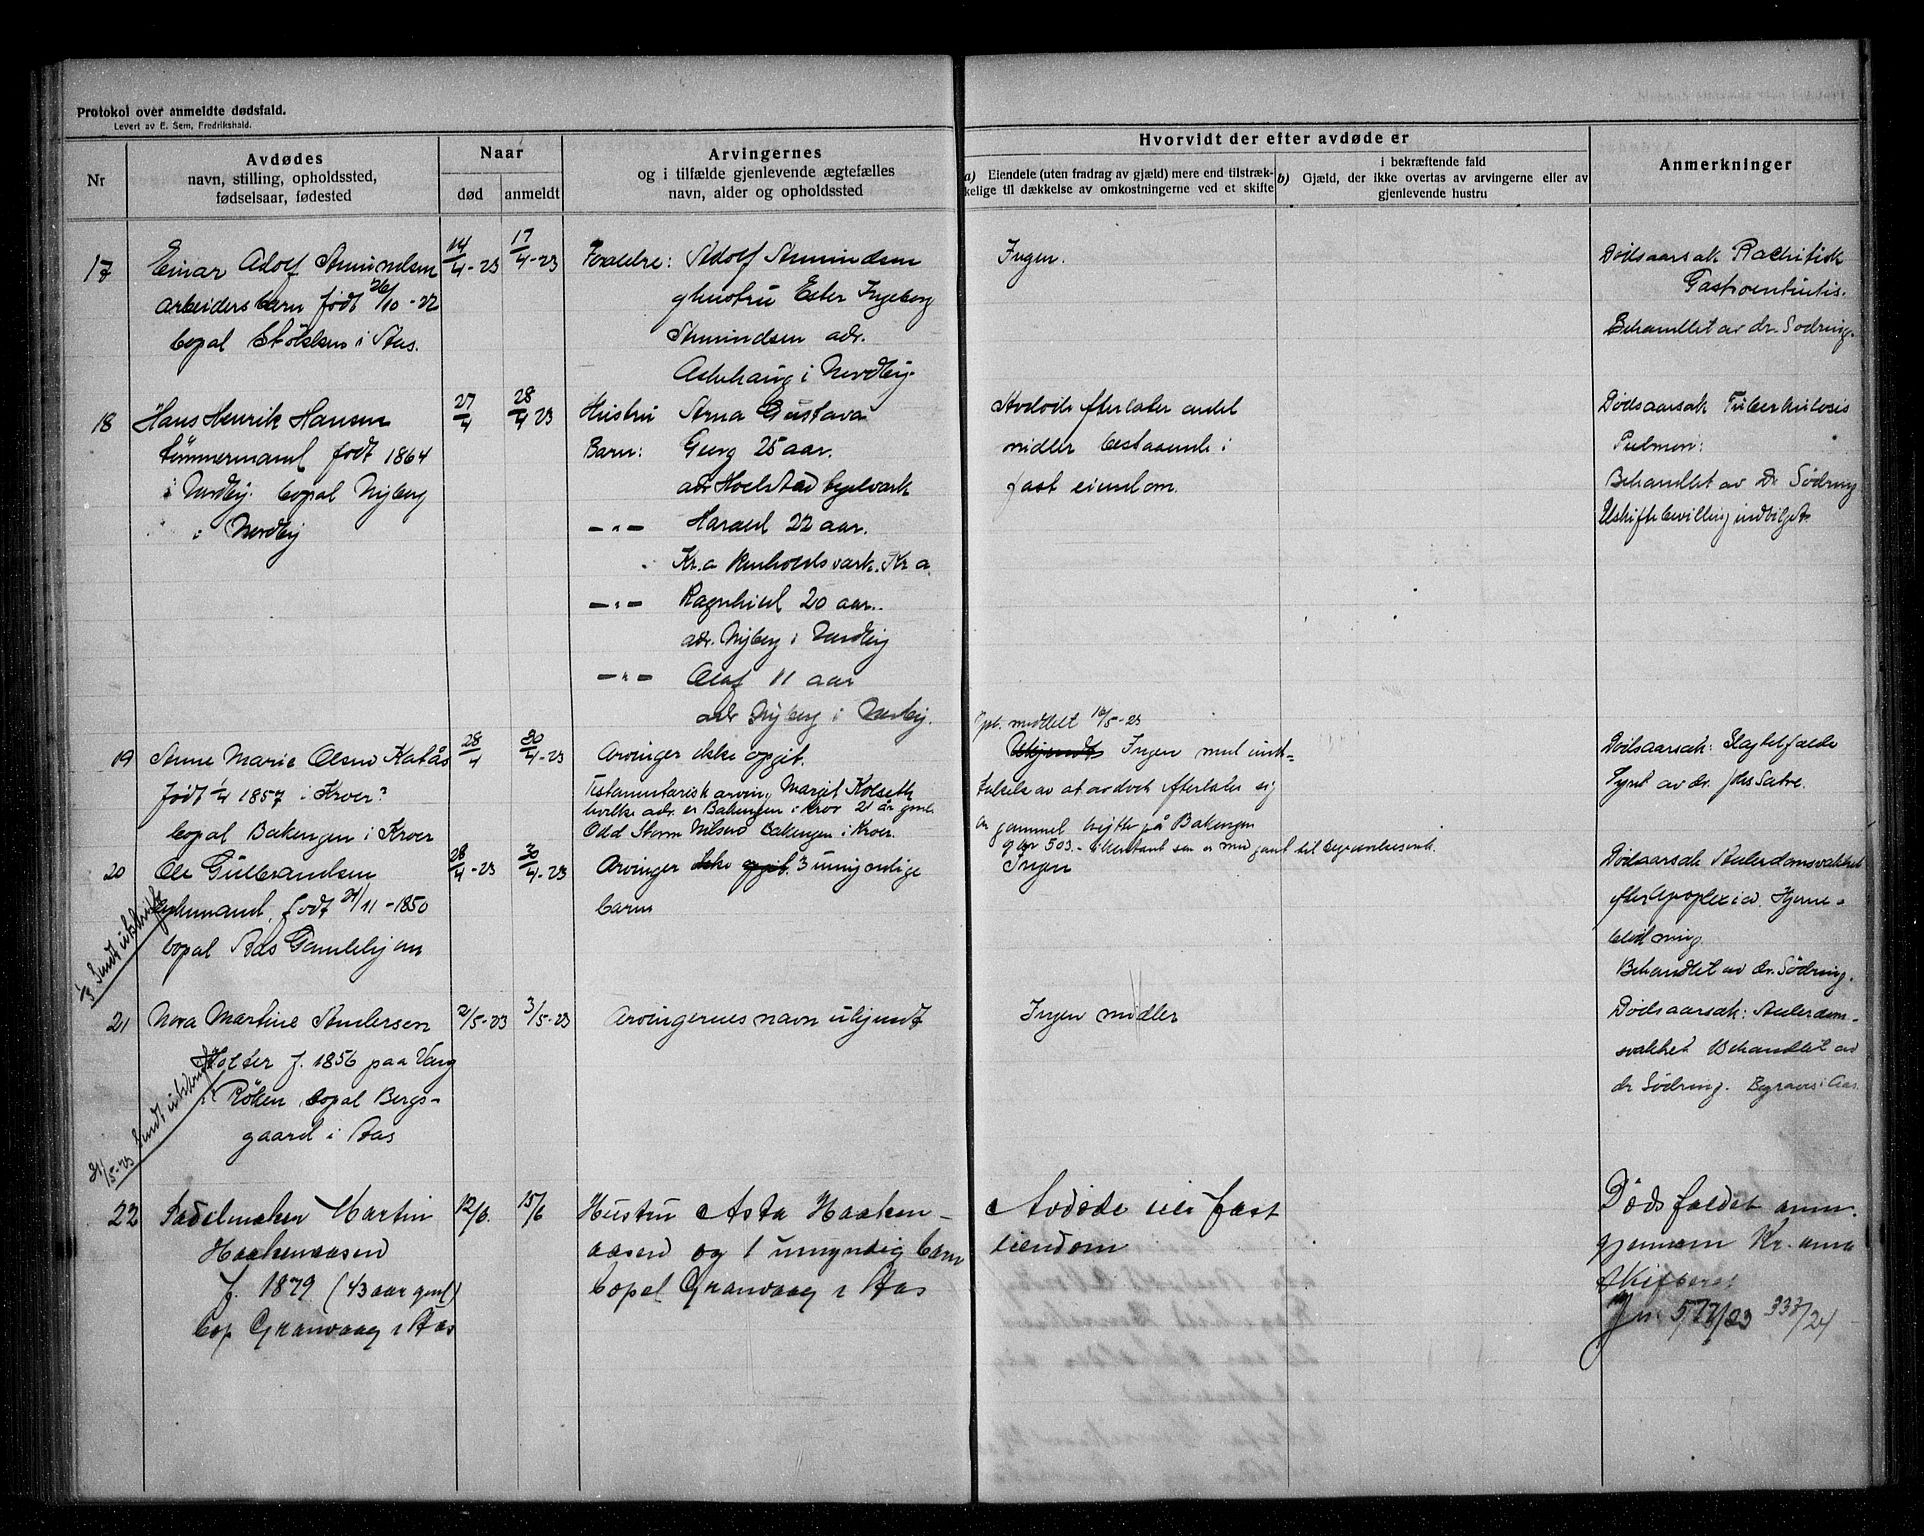 Protokol over anmeldte dødsfald.
Levert av E. Sem, Fredrikshald.
Nr
Avdødes
navn, stilling, opholdssted,
fødselsaar, fødested
Naar
død
anmeldt
Arvingernes
og i tilfælde gjenlevende ægtefælles
navn, alder og opholdssted
Hvorvidt der efter avdøde er
a) Eiendele (uten fradrag av gjæld) mere end tilstræk-
kelige til dækkelse av omkostningerne ved et skifte
i bekræftende fald
b) Gjæld, der ikke overtas av arvingerne eller av
gjenlevende hustru
Anmerkninger
17
Einar Adolf Amundsen
arbeidersbarn født 26/10-22
bopal i Aas.
14/4-23
17/4-23
Forældre: Adolf Amundsen
og hustru Ester Ingeborg
Amundsen adr.
Askehaug i Nordby.
Ingen.
Dødsaarsak Rachitisk
Gastroenteritis.
Behandlet av dr. Sødring.
18
Hans Henrik Hansen
tømmermand født 1864
i Nordby. bopal Nyberg
i Nordby
27/4
28/4 23
Hustru Anna Gustava
Barn: Georg 25 aar.
adr
— " — Harald 22 aar.
Kr.a Renholdsverk. Kr a.
— " — Ragnhild 20 aar.
adr. Nyberg i Nordby
— " — Olaf 11 aar
adr Nyberg i Nordby.
Avdøde efterlater endel
midler bestaaende i
fast eiendom.
Dødsaarsak Tuberkulosis
Pulmon:
Behandlet av Dr Sødring
Uskiftebevilling indvilget.
19
Anne Marie Olsen Katås
født 1/4 1857 i Kroer?
bopal Bakengen i Kroer
28/4
30/4-23
Arvinger ikke opgit.
Testamentarisk arving Margit Kolseth
hvilke adr. er Bakengen i Kroer 21 år gml.
Odd Storm Nilsen Bakengen i Kroer.
meddelt 16/5-23
Ukjendt Ingen med und-
takelse av at avdøde efterlater sig
en gammel hytte på Bakengen
som er med gaat til begravelsesutk.
Dødsaarsak: Slagtilfælde
Synet av dr. Johs Sætre.
20
Ole Gulbrandsen
født 21/11-1850
bopal Aas Gamlehjem
28/4-23
30/4-23
Arvinger ikke opgit. 3 umyndige
barn
Ingen
Dødsaarsak Alderdomsvakhet
efter Apoplexia. Hjerne-
blødning.
Behandlet av dr. Sødring.
Sendt utskrift
21
Nora Martine Andersen
Holter f. 1856 paa
i Røken bopal Bergs-
gaard i Aas
2/5-23
3/5-23
Arvingernes navn ukjendt
Ingen midler
Dødsaarsak: Alderdom-
svakhet Behandlet av
dr Sødring. Begraves i Aas.
31/5-23 Sendt utskrift
22
Sadelmaker Martin
Haakenaasen
f. 1879 (43 aar gml)
bop Granvaag i Aas
12/6.
15/6
Hustru Asta Haaken-
aasen og 1 umyndig barn
bopal Granvaag i Aas
Avdøde eier fast
eiendom
Dødsfaldet anm.
gjennem Kr.ania
skifteret
Jn. 577/23 337/24